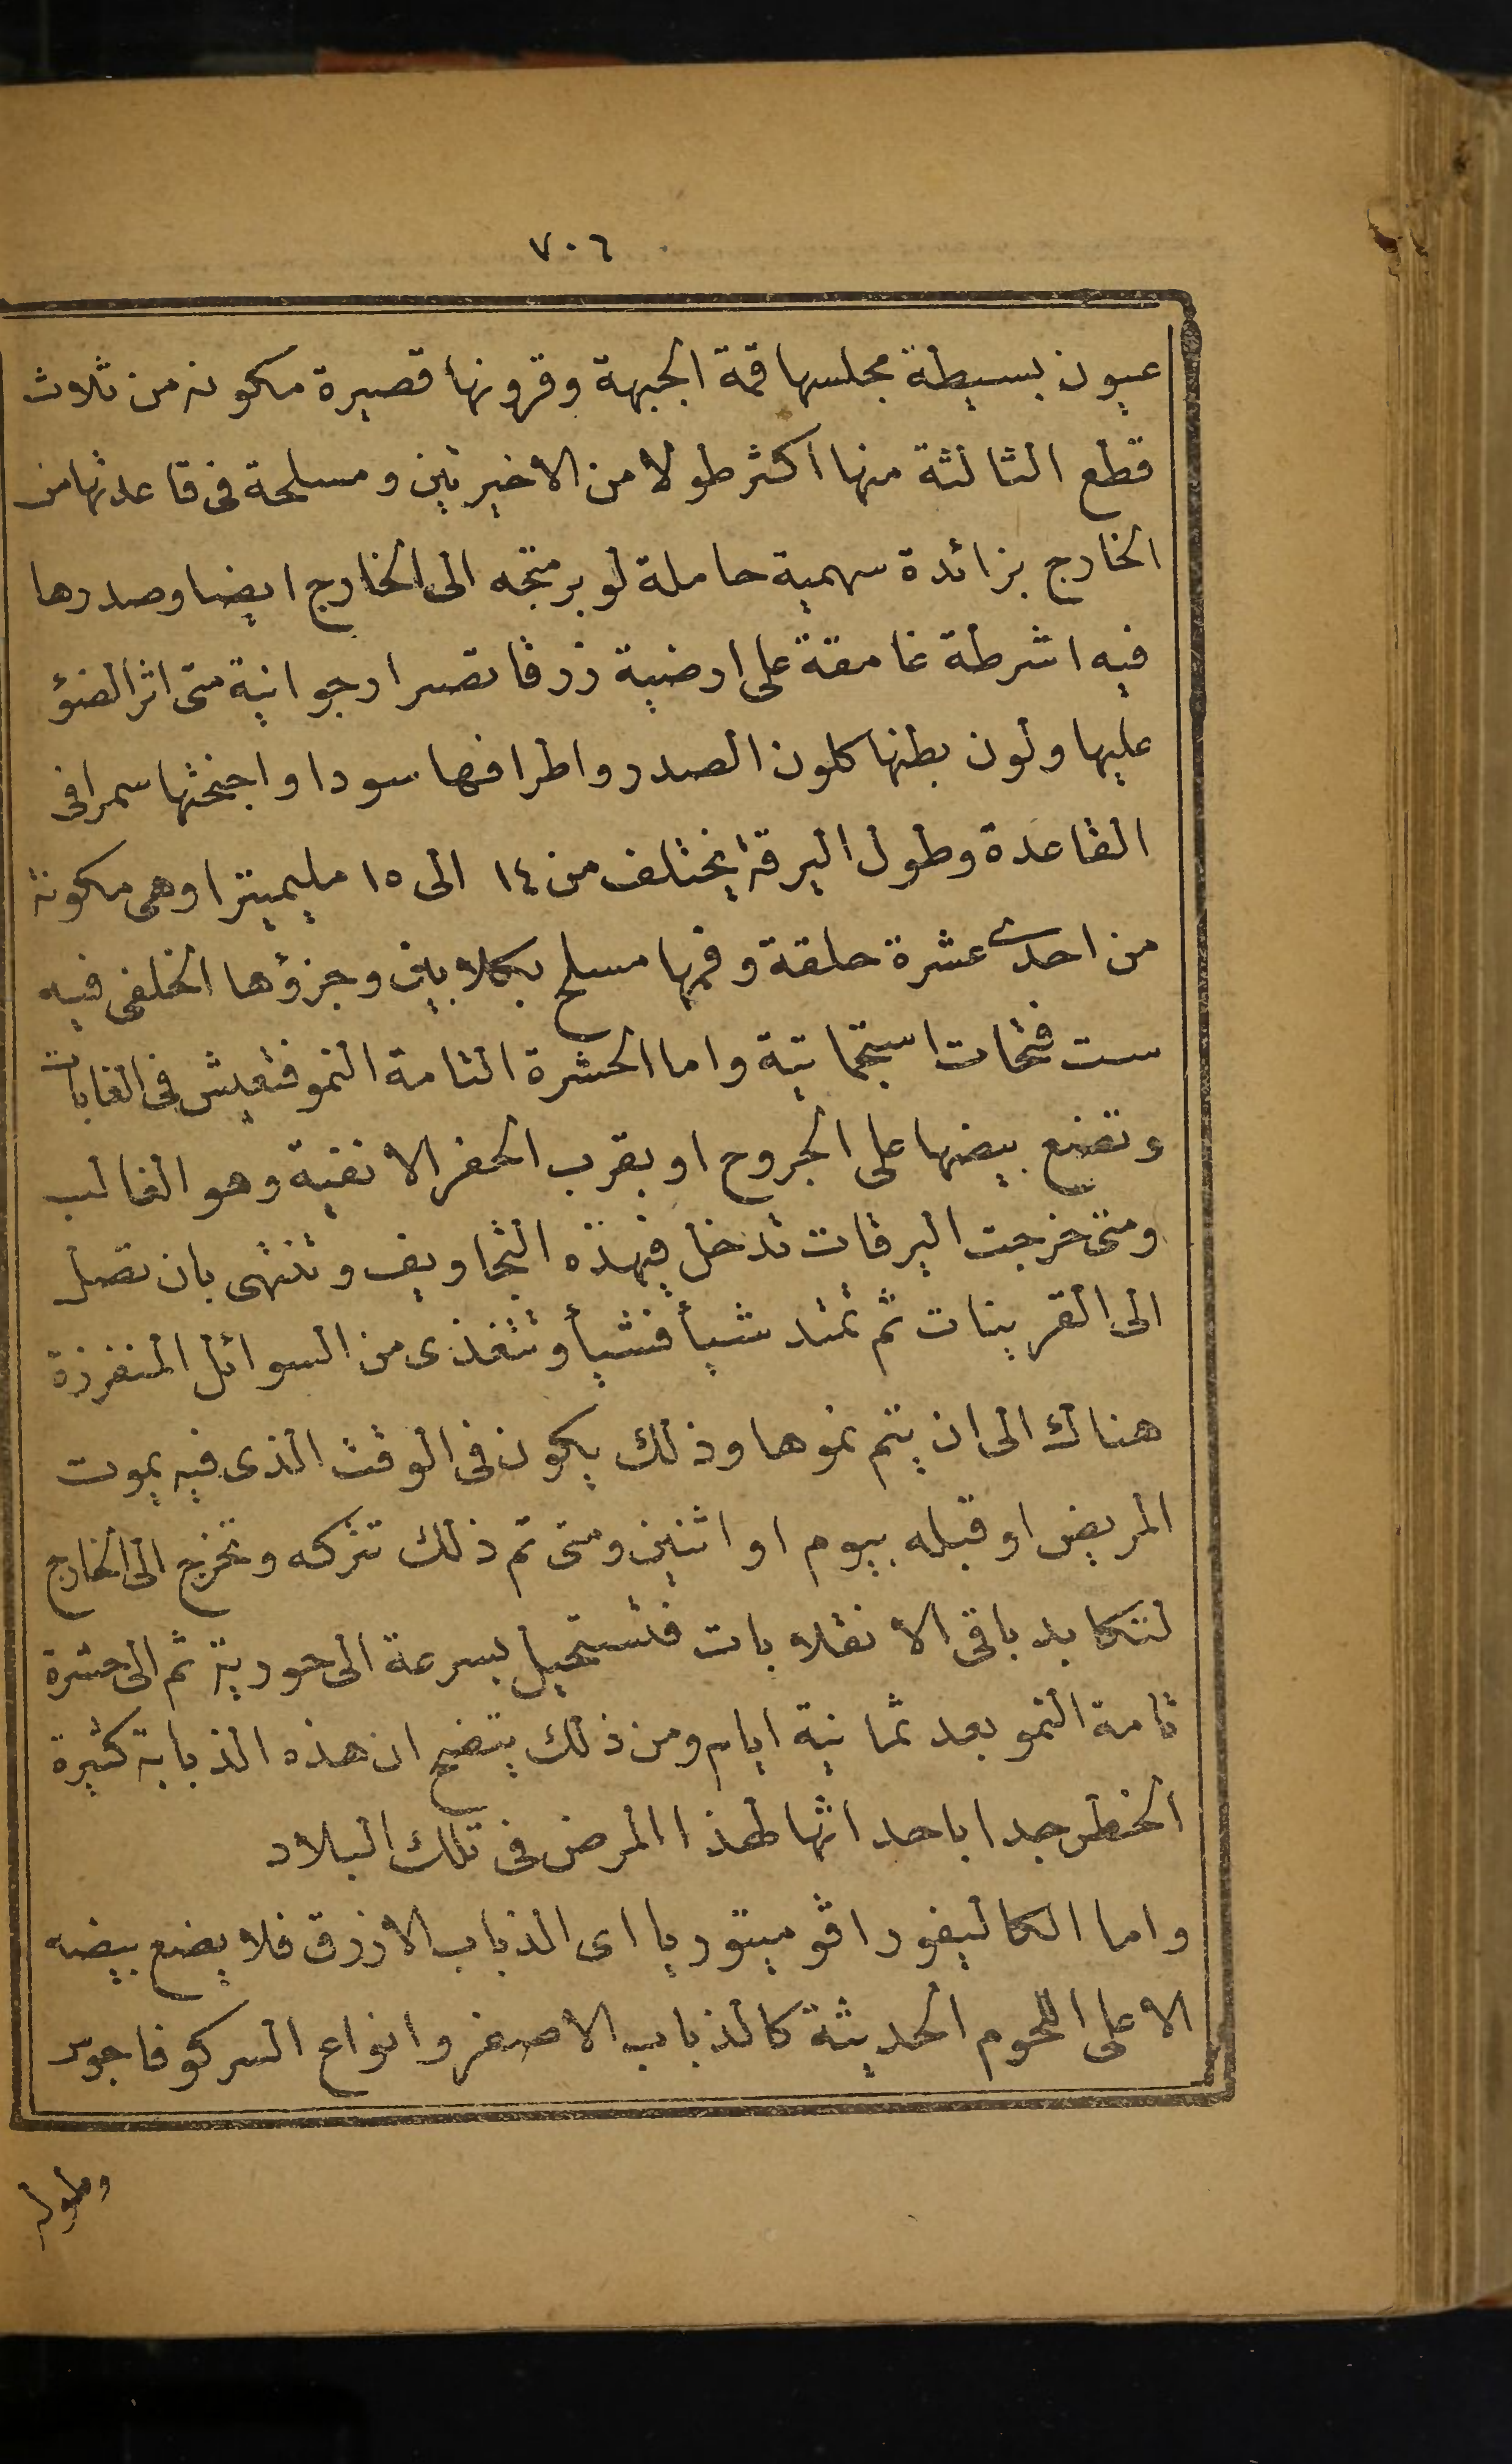 ٧٠٦
عيون بسيطة مجلسها قمة الجبهة وقرونها قصيرة مكونه من ثلاث
قطع الثالثة منها اكثر طولا من الاخيرتين ومسلحة فى قاعدتها من
الخارج بزائدة سهمية حاملة لوبر متجه الى الخارج ايضا وصدرها
فيه اشرطة غامقة على ارضية زرقا تصير ارجوانية متى اثر الضؤ
عليها ولون بطنها كلون الصدر واطرافها سودا واجنحتها سمرا فى
القاعدة وطول اليرقة يختلف من ١٤ الى ١٥ مليميترا وهى مكونة
من احدى عشرة حلقة وفمها مسلح بكلابين وجزؤها الخلفى فيه
ست فتحات استجماتية واما الحشرة التامة النمو فتعيش فى الغابات
وتضع بيضها على الجروح او بقرب الحفر الانفية وهو الغالب
ومتى خرجت اليرقات تدخل فى هذه التجاويف وتنتهى بان تصل
الى القرينات ثم تمتد شيأ فشيأ وتتغذى من السوائل المنفرزة
هناك الى ان يتم نموها وذلك يكون فى الوقت الذى فيه يموت
المريض او قبله بيوم او اثنين ومتى تم ذلك تتركه وتخرج الى الخارج
لتكابد باقى الانقلابات فتستحيل بسرعة الى حورية ثم الى حشرة
تامة النمو بعد ثمانية ايام ومن ذلك يتضح ان هذه الذبابة كثيرة
الخطر جدا باحداثها لهذا المرض فى تلك البلاد
واما الكاليفورا ڤوميتوريا اى الذباب الازرق فلا يضع بيضه
الا على اللحوم الحديثة كالذباب الاصفر وانواع السركوفاجوس
وطوله